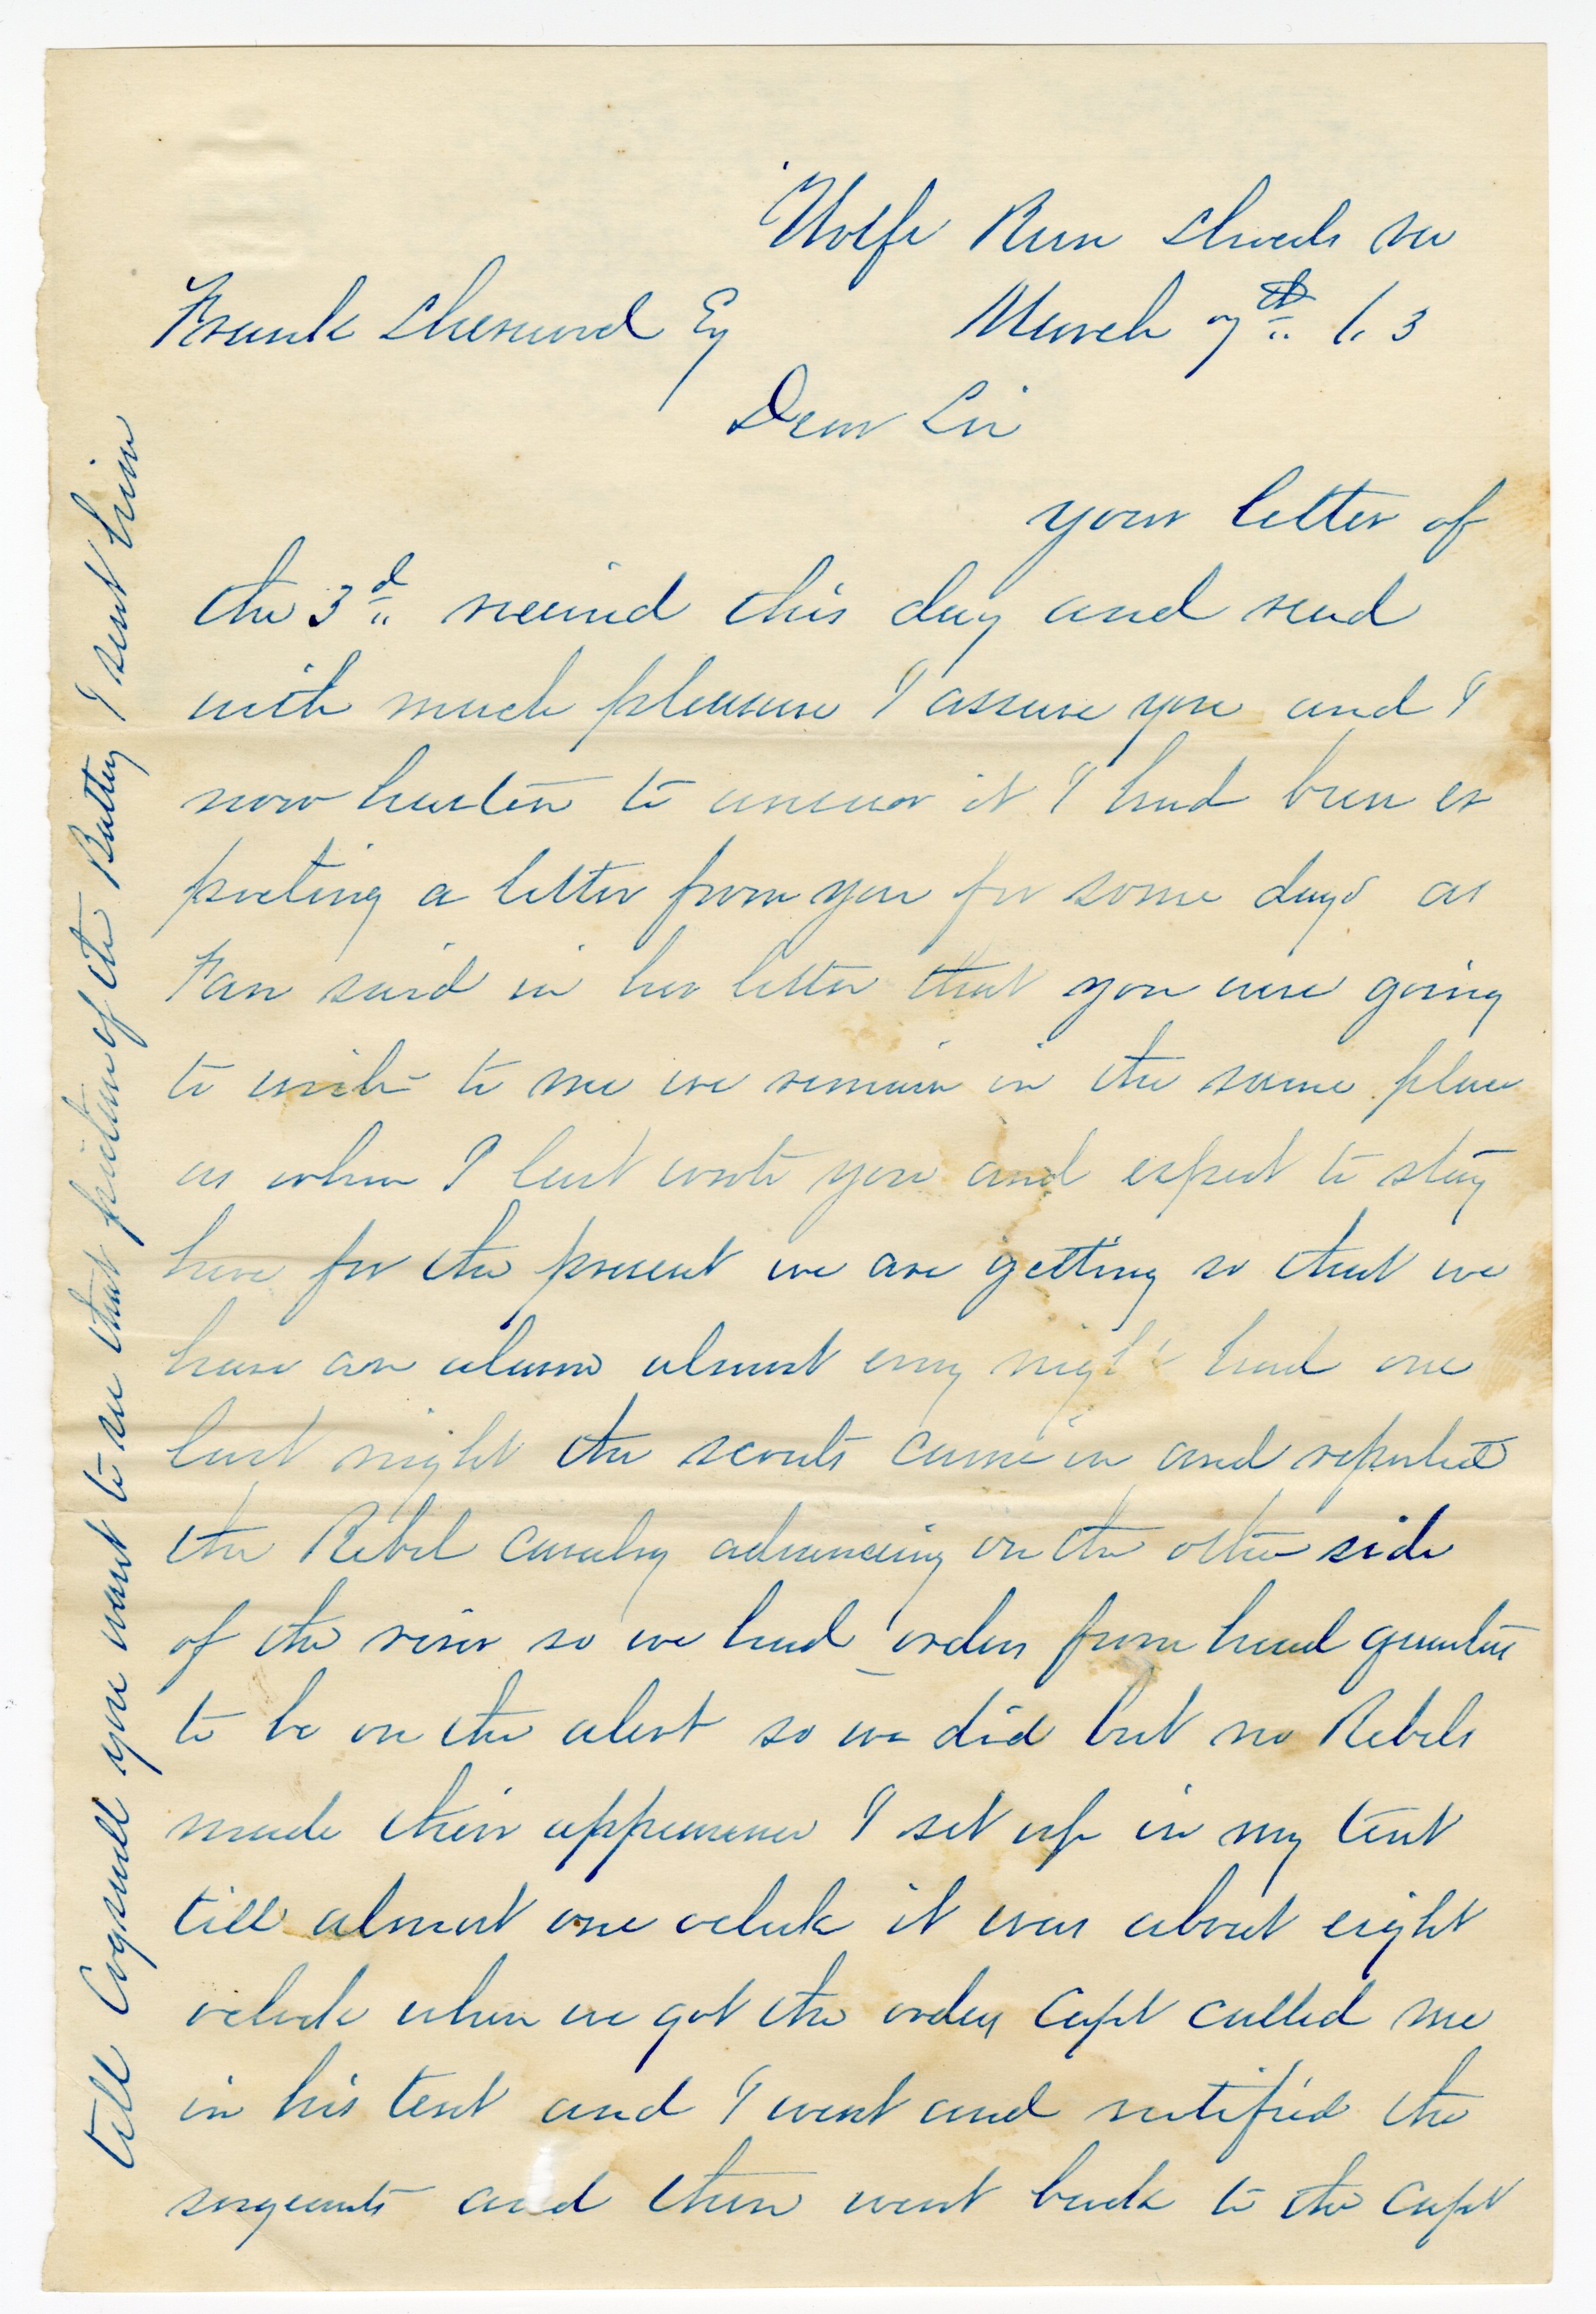 Wolfe Run Shoals va
Frank Sherurd Eq March 7th 63
Dear Sir
your letter of
the 3d recived this day and read
with much pleasure I assure you and I
now hasten to answer it I had been ex
pecting a letter from you for some days as
Fan said in her letter that you were going
to write to me we remain in the same place
as when I last wrote you and expect to stay
here for the present we are getting so that we
have an alarm almost evry night had one
last night the scouts came in and reported
the Rebel cavalry advancing on the other side
of the river so we had orders from head quarters
to be on the alert so we did but no Rebels
made their appearance I set up in my tent
till almost one oclock it was about eight
oclock when we got the orders Capt called me
in his tent and I went and notified the
sergeants and then went back to the Capt
till Cogswell you want to see that picture of the Battery I sent him